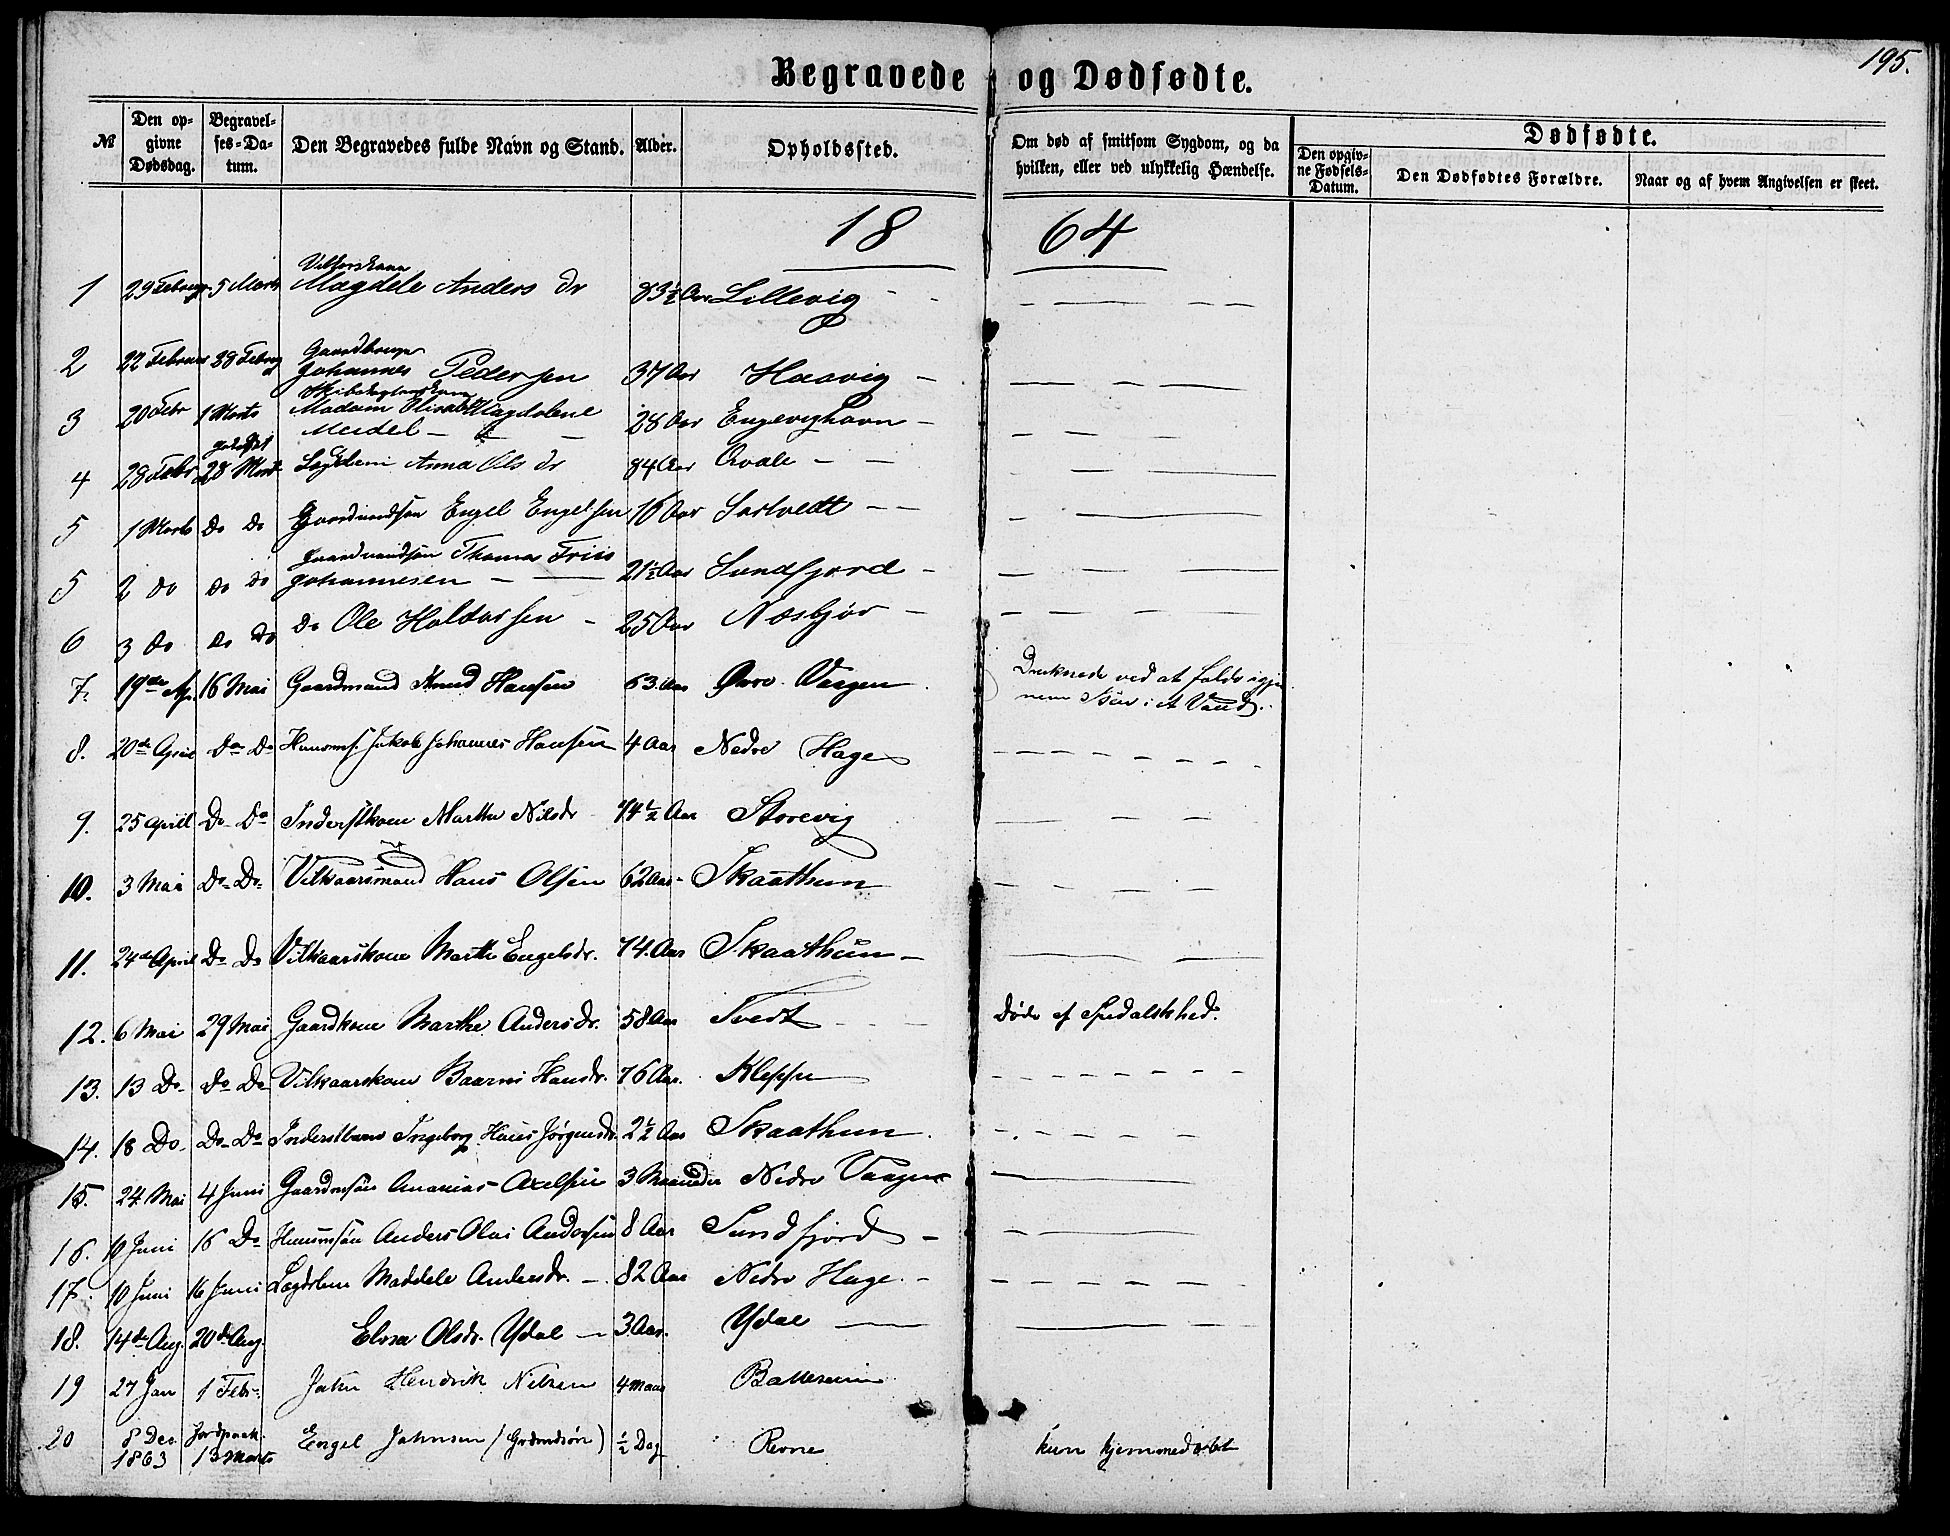 195.
Begravede og Dødfødte.
№ Den opgivne Dødsdag. Begravelses-Datum. Den Begravedes fulde Navn og Stand. Alder. Opholdssted. Om død af smitsom Sygdom, og da hvilken, eller ved ulykkelig Hændelse. Dødfødte. Den opgivne Fødsels-Datum. Den Dødfødtes Forældre. Naar og af hvem Angivelsen er skeet.
18 64
1 29 Februar 5 Marts Magdele Anders dr 83½ Aar Lillevig
2 22 Februar 28 Febru Gaardbruger Johannes Pedersen 37 Aar Haavig
3 20 Febr 1 Marts Madam Magdalene Meidel 28 Aar Engevighavn
4 28 Febr 28 Marts Anna Ols dr 84 Aar Qvale
5 1 Marts do do Gaardmandsøn Engel Engelsen 16 Aar
5 2 do do do Gaardmandsøn Thomas Friis Johannesen 21½ Aar Sundfjord
6 3 do do do do Ole Haldorsen 25 Aar Næsbjør
7. 19de Ap. 16 Mai Gaardmand Knud Hansen 63 Aar Øvre Vaagen Druknede ved at falde igjennem Isen i et Vand.
8. 20de April Do Do Huusms. Jakob Johannes Hansen 4 Aar Nedre Hage
9. 25 April Do Do Inderstkone Marthe Nilsdr 44½ Aar Storevig
10. 3 Mai Do Do Vilkaarsmand Hans Olsen 62 Aar Skaathun
11. 24de April Do Do Vilkaarskone Marthe Engelsdr. 74. Aar Skaathun
12. 6 Mai 29 Mai Gaardkone Marthe Andersdr. 58 Aar Tvedt Døde af Spedalskhed.
13. 13 Do Do Do Vilkaarskone Hansdr. 76 Aar. Kleppe
14. 18 Do Do Do Inderstbarn Ingeborg Hans Jørgensdr. 2½ Aar Skaathun
15. 24 Mai 4 Juni Gaardmsøn Ananias Axelsen 3 Maaneder Nedre Vaagen
16. 10 Juni 16 Do Huusmsøn Anders Olai Andersen 8 Aar Sundfjord
17. 10 Juni 16 Juni Lægdslem Maddele Andersdr. 82 Aar Nedre Hage
18. 14de Aug. 20de Aug. Olsdr. Ydal 3 Aar. Ydal
19 27 Jan 1 Febr. John Hendrik Nilsen 4 maan
20 8 Dec 1863 Jordpaak. 13 Marts Engel Johnsen (Grdmdsøn) ½ Dag Revne kun hjemmedøbt